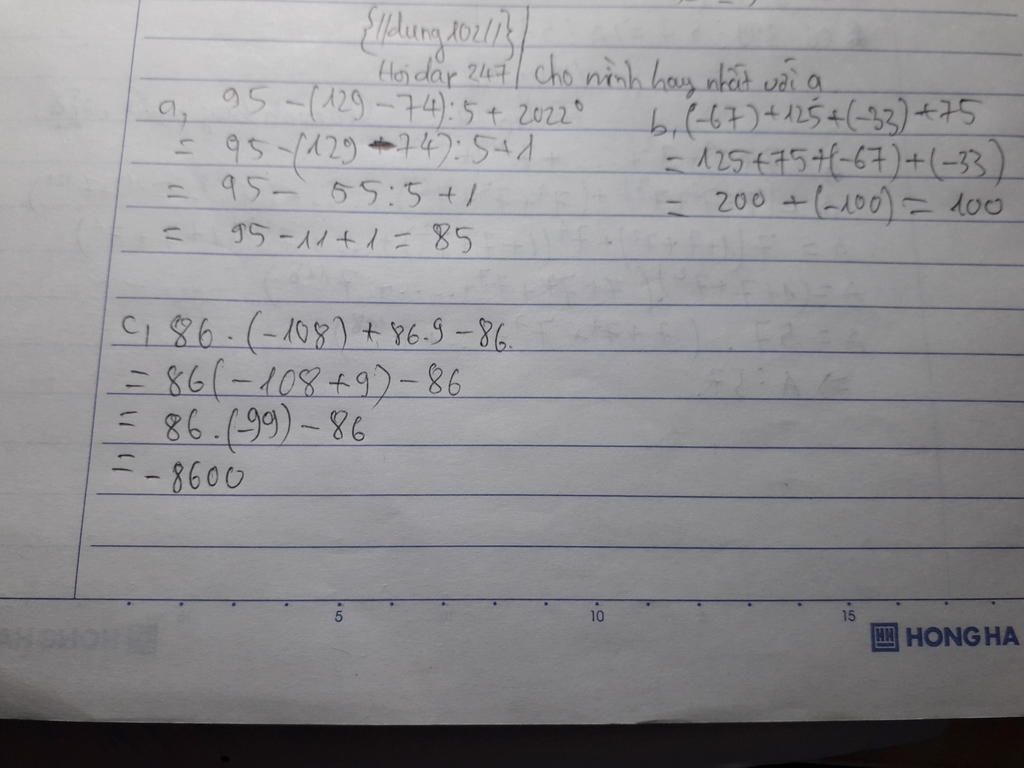 {//dung102//}
Hoidap 247 cho mình hay nhất với ạ
a, 95 - (129 - 74) : 5 + 2022⁰
= 95 - (129 - 74) : 5 + 1
= 95 - 55 : 5 + 1
= 95 - 11 + 1 = 85
b, (-67) + 125 + (-33) + 75
= 125 + 75 + (-67) + (-33)
= 200 + (-100) = 100
c, 86 . (-108) + 86.9 - 86.
= 86 (-108 + 9) - 86
= 86 . (-99) - 86
= -8600
5 10 15
HONG HA